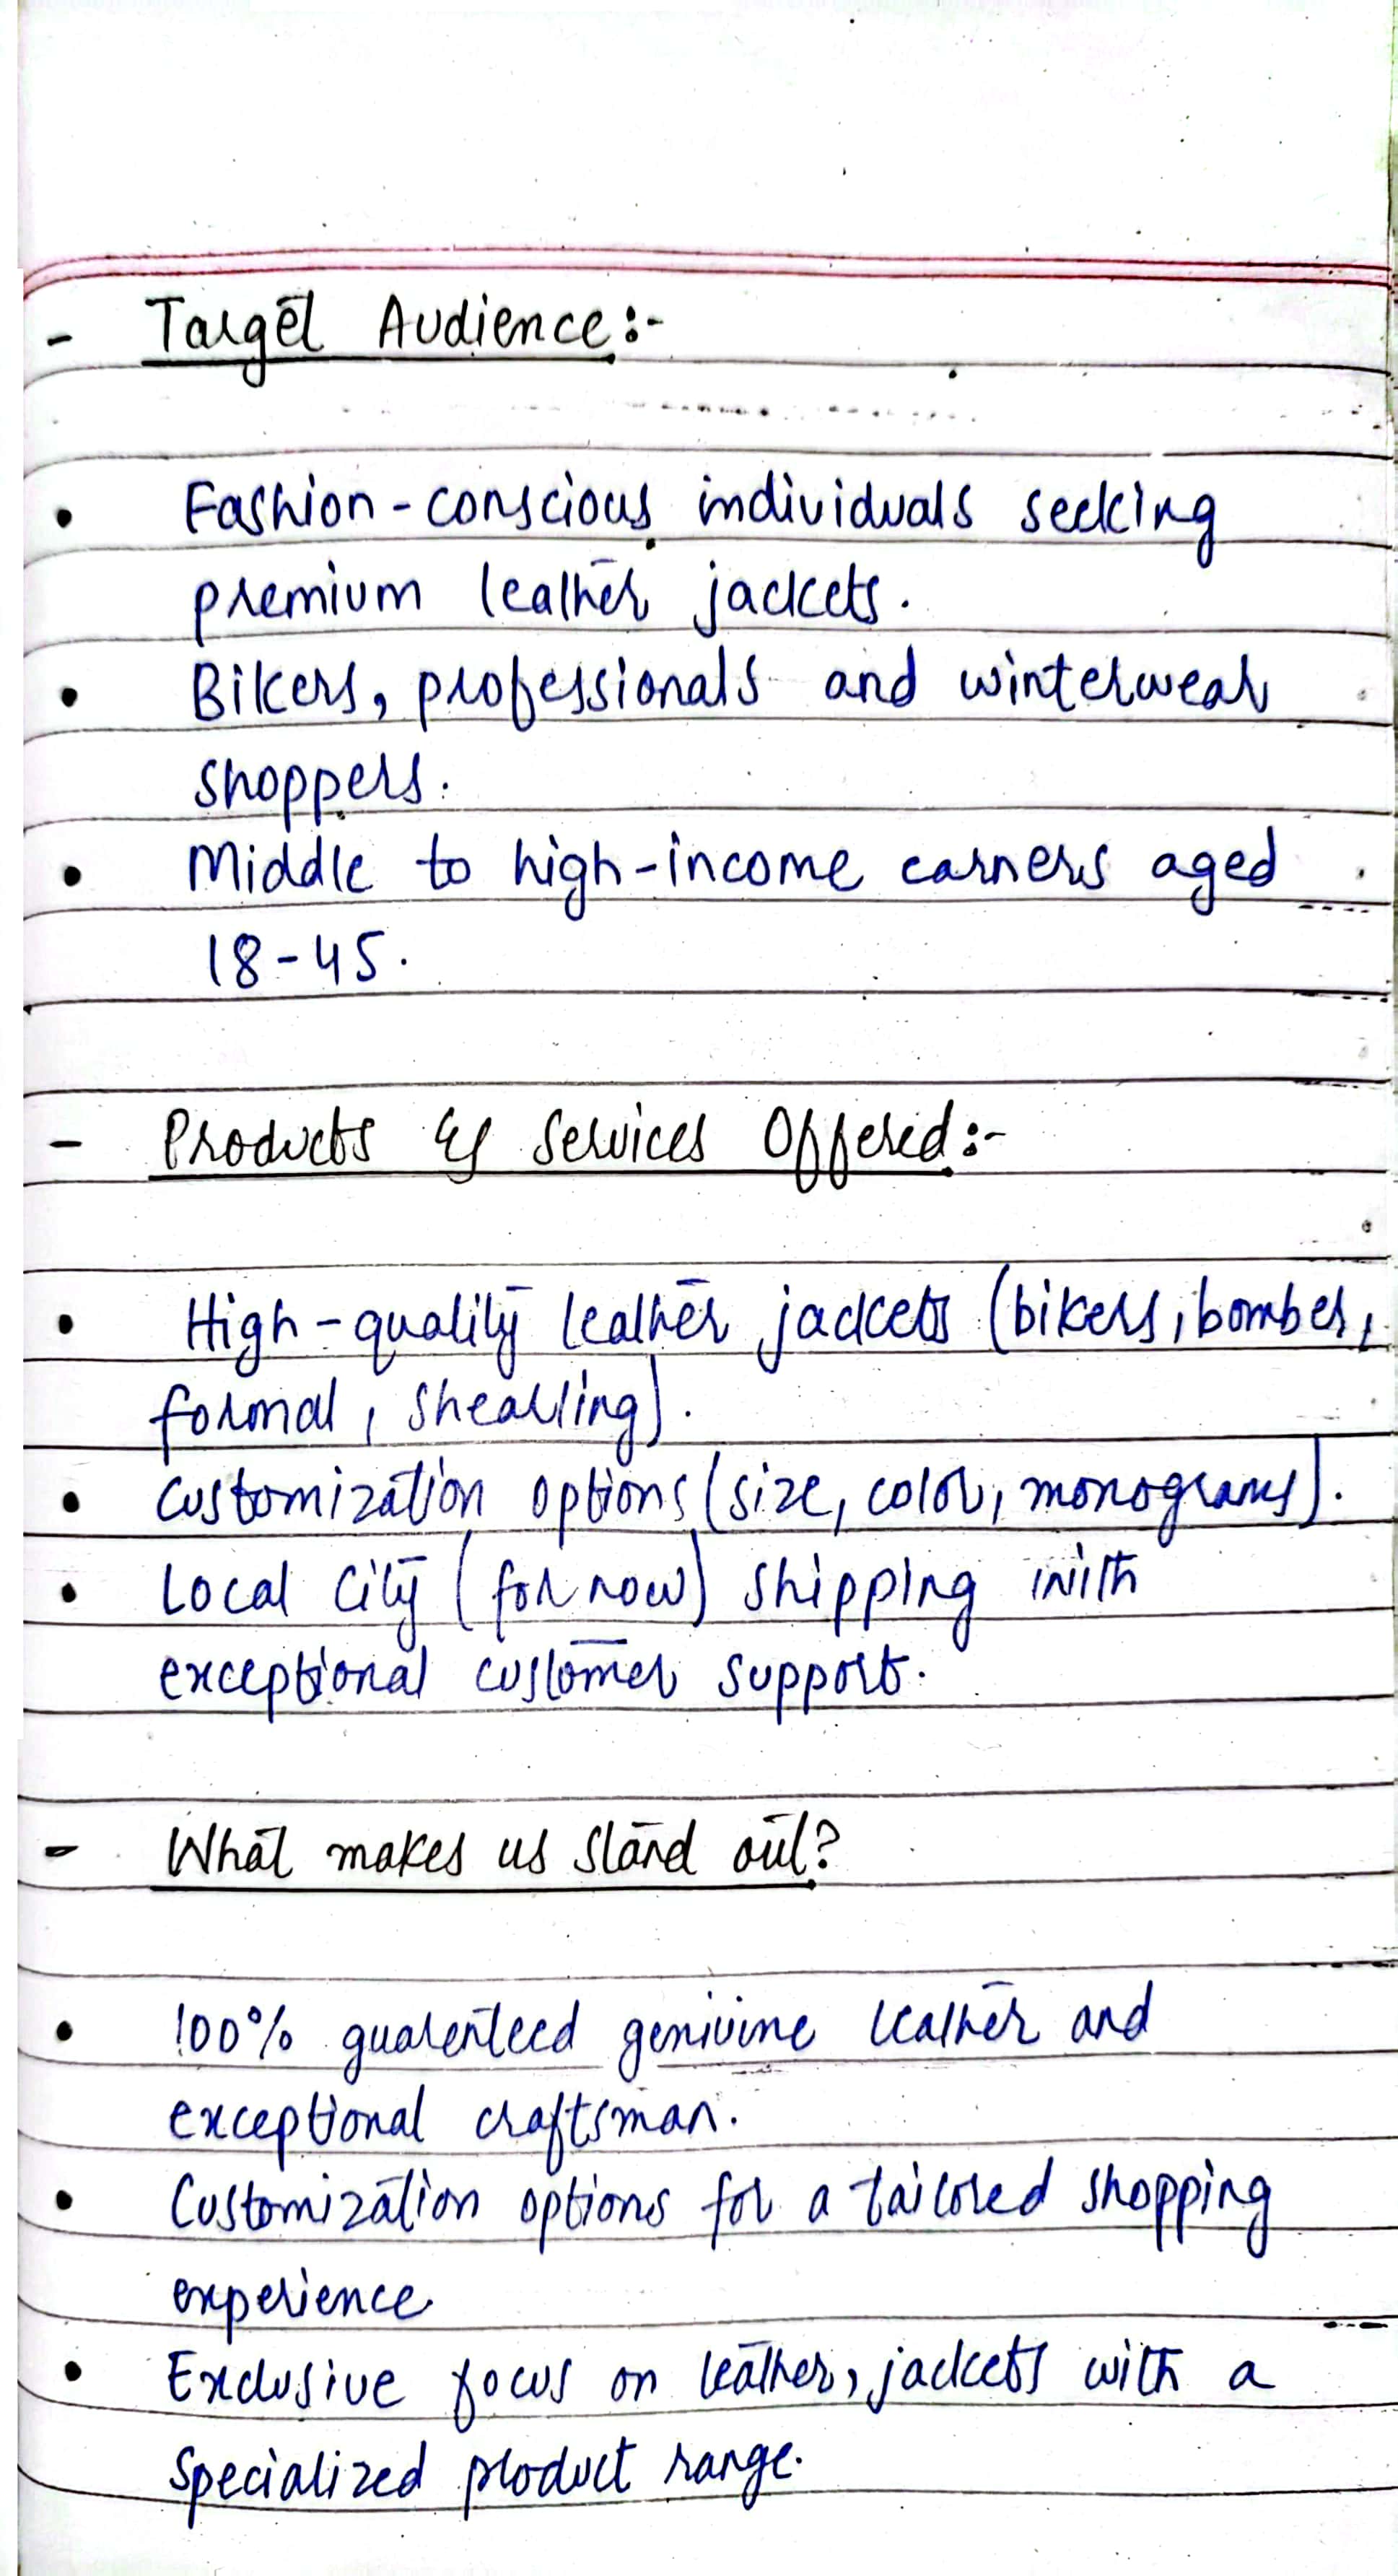 - Target Audience:-
• Fashion-conscious individuals seeking
premium leather jackets.
• Bikers, professionals and winterwear
shoppers.
• Middle to high-income earners aged
18-45.
- Products & Services Offered:-
• High-quality leather jackets (bikers, bomber,
formal, shearling).
• Customization options (size, color, monograms).
• Local City (for now) shipping with
exceptional customer support.
- What makes us stand out?
• 100% guarenteed geniuine leather and
exceptional craftsman.
• Customization options for a tailored shopping
experience
• Exclusive focus on leather, jackets with a
specialized product range.